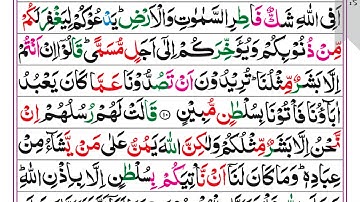 اَفِى اللّٰهِ شَكٌّ فَاطِرِ السَّمٰوٰتِ وَالْاَرْضِ ؕ يَدْعُوْكُمْ لِيَغْفِرَ لَكُمْ
مِّنْ ذُنُوْبِكُمْ وَيُؤَخِّرَكُمْ اِلٰٓى اَجَلٍ مُّسَمًّى ؕ قَالُوْۤا اِنْ اَنْتُمْ
اِلَّا بَشَرٌ مِّثْلُنَا ؕ تُرِيْدُوْنَ اَنْ تَصُدُّوْنَا عَمَّا كَانَ يَعْبُدُ
اٰبَآؤُنَا فَاْتُوْنَا بِسُلْطٰنٍ مُّبِيْنٍ ۝۱۰ قَالَتْ لَهُمْ رُسُلُهُمْ اِنْ
نَّحْنُ اِلَّا بَشَرٌ مِّثْلُكُمْ وَلٰكِنَّ اللّٰهَ يَمُنُّ عَلٰى مَنْ يَّشَآءُ مِنْ
عِبَادِهٖ ؕ وَمَا كَانَ لَنَاۤ اَنْ نَّاْتِيَكُمْ بِسُلْطٰنٍ اِلَّا بِاِذْنِ اللّٰهِ ؕ